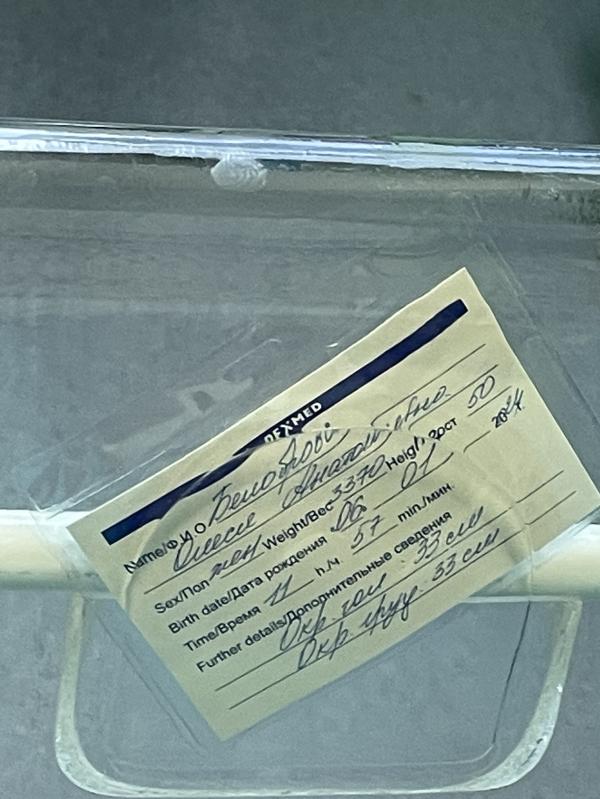 DEXMED
Name/Ф И О
Олеся Анатольевна
Sex/Пол жен Weight/Вес 3370 Height/Рост 50
Birth date/Дата рождения 06 01 2024
Time/Время 11 h./ч. 57 min./мин.
Further details/Дополнительные сведения
Окр. гол. 33 см
Окр. груд. 33 см